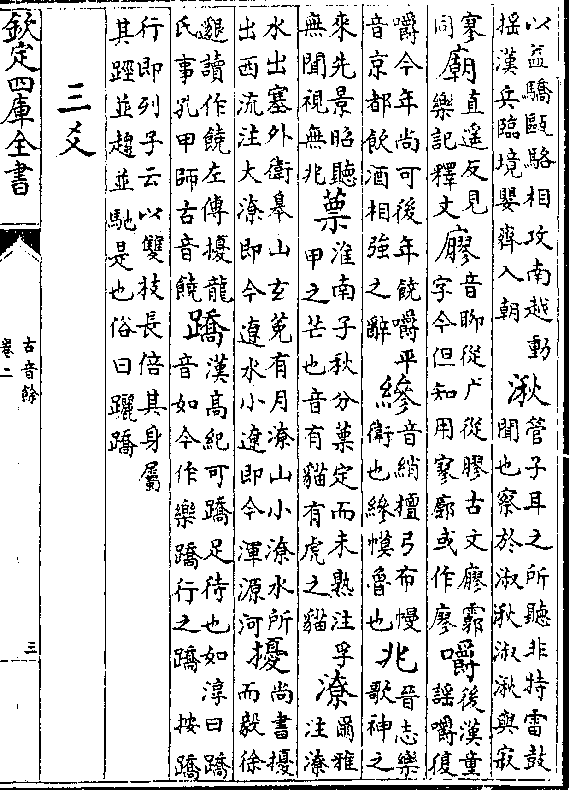 以益驕甌駱相攻南越動
搖漢兵臨境嬰齊入朝
湫
管子耳之所聽非特雷鼓
聞也察於淑湫淑湫與寂
寥
同
廟
直遥反見
樂記釋文
廫
音聊從广從膠古文廫霩
字今但知用寥廓或作廖
嚼
後漢童
謡嚼復
嚼今年尚可後年饒嚼平
音京都飲酒相強之辭
縿
音綃檀弓布幔
衛也縿幙魯也
兆
晉志樂
歌神之
來先景昭聽
無聞視無兆
蔈
淮南子秋分蔈定而未熟注孚
甲之芒也音有貓有虎之貓
潦
爾雅
注潦
水出塞外衛臯山玄菟有月潦山小潦水所
出西流注大潦即今遼水小遼即今渾源河
擾
尚書擾
而毅徐
邈讀作饒左傳擾龍
氏事孔甲師古音饒
蹻
漢高紀可蹻足待也如淳曰蹻
音如今作樂蹻行之蹻按蹻
行即列子云以雙枝長倍其身屬
其踁並趨並馳是也俗曰躧蹻
三爻
欽定四庫全書
古音餘
卷二
三